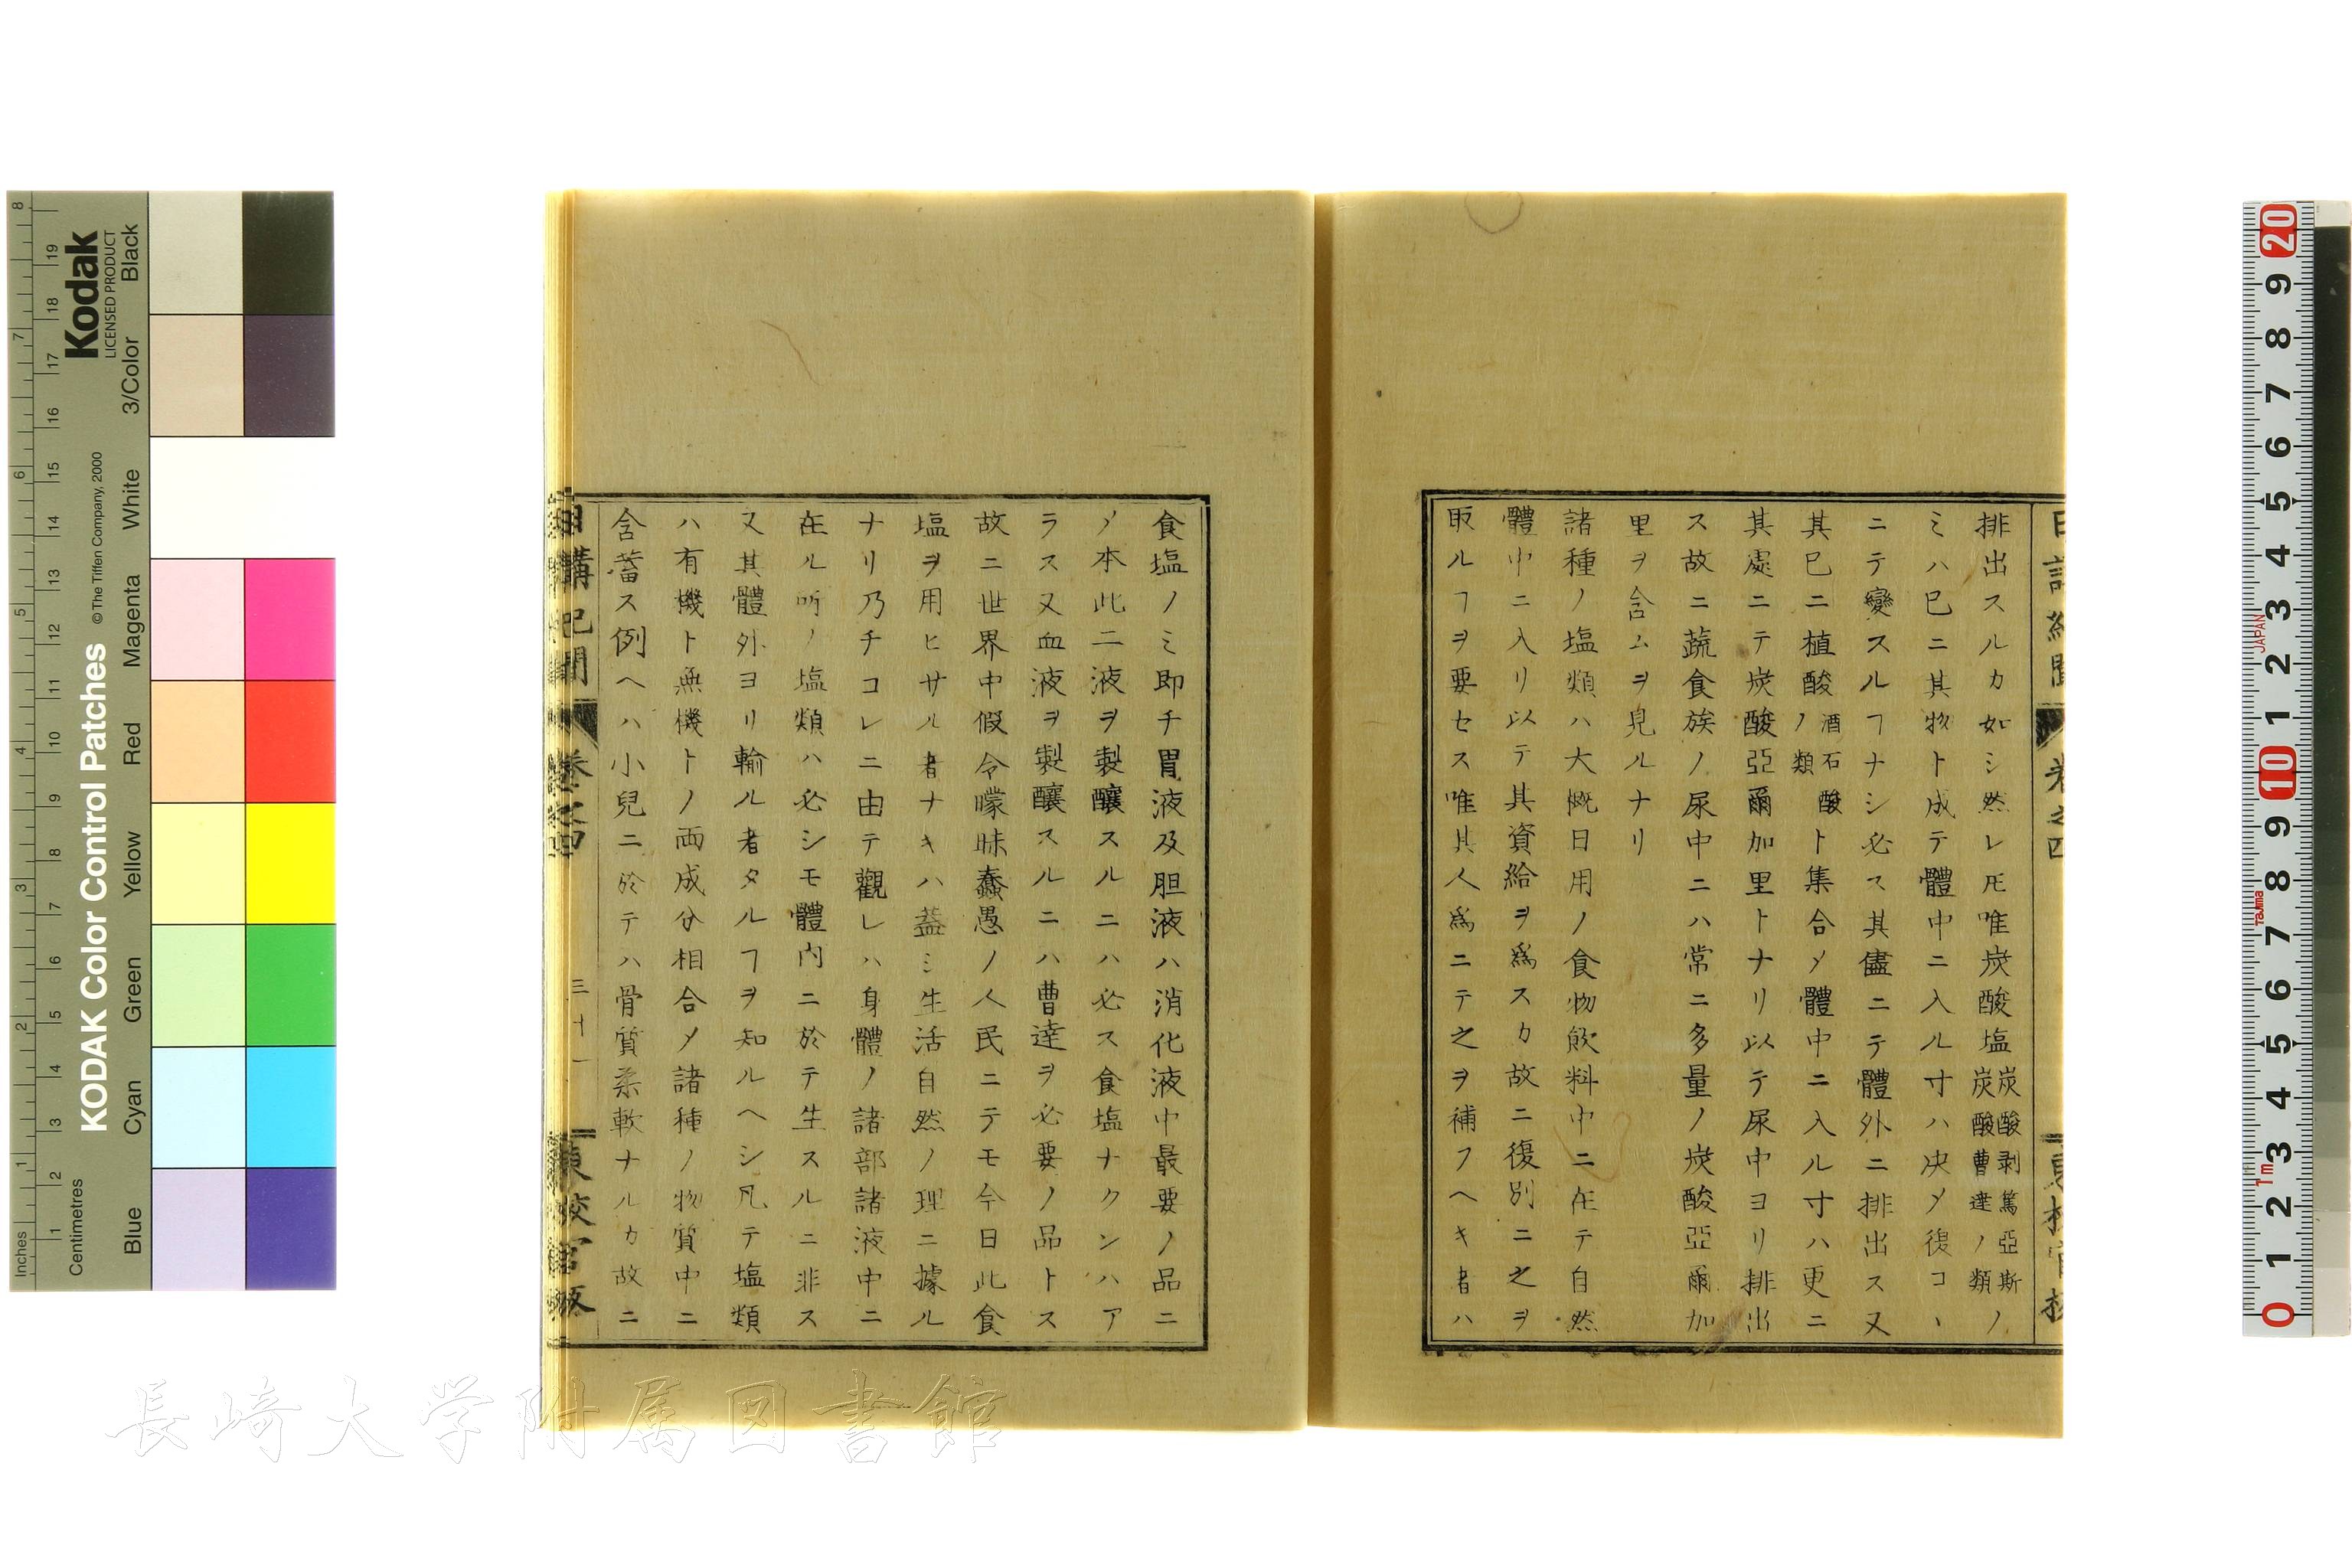 排出スルカ如シ然レ𪜈唯炭酸塩炭酸剥篤亞斯ノ炭酸曹達ノ類
ミハ已ニ其物ト成テ體中ニ入ル寸ハ决〆復コヽ
ニテ變スルヿナシ必ス其儘ニテ體外ニ排出ス又
其已ニ植酸酒石酸ノ類ト集合〆體中ニ入ル寸ハ更ニ
其處ニテ炭酸亞爾加里トナリ以テ尿中ヨリ排出
ス故ニ蔬食族ノ尿中ニハ常ニ多量ノ炭酸亞爾加
里ヲ含ムヲ見ルナリ
諸種ノ塩類ハ大慨日用ノ食物飲料中ニ在テ自然
體中ニ入リ以テ其資給ヲ爲スカ故ニ復別ニ之ヲ
取ルヿヲ要セス唯其人爲ニテ之ヲ補フヘキ者ハ
食塩ノミ即チ胃液及胆液ハ消化液中最要ノ品ニ
ノ本此二液ヲ製釀スルニハ必ス食塩ナクンハア
ラス又血液ヲ製釀スルニハ曹達ヲ必要ノ品トス
故ニ世界中假令曚昧蠢愚ノ人民ニテモ今日此食
塩ヲ用ヒサル者ナキハ蓋ミ生活自然ノ理ニ據ル
ナリ乃チコレニ由テ觀レハ身體ノ諸部諸液中ニ
在ル所ノ塩類ハ必シモ體内ニ於テ生スルニ非ス
又其體外ヨリ輸ル者タルヿヲ知ルヘシ凡テ塩類
ハ有機ト無機トノ両成分相合〆諸種ノ物質中ニ
含蓄ス例ヘハ小兒ニ於テハ骨質柔軟ナルカ故ニ
日講記聞 卷之四 三十一
長崎大学附属図書館
KODAK Color Control Patches
© The Tiffen Company, 2000
Kodak
LICENSED PRODUCT
Inches
Centimetres
Blue Cyan Green Yellow Red Magenta White 3/Color Black
JAPAN
Tajima